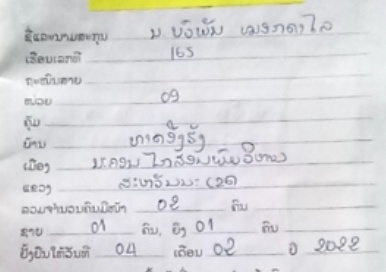 ຊື່ແລະນາມສະກຸນ ນ. ບົວພັນ
ເຮືອນເລກທີ 165
ຖະໜົນສາຍ
ໜ່ວຍ 09
ຄຸ້ມ
ບ້ານ
ເມືອງ ນະຄອນ ໄກສອນພົມວິຫານ
ແຂວງ ສະຫວັນນະເຂດ
ລວມຈຳນວນຄົນມີໜ້າ 02 ຄົນ
ຊາຍ 01 ຄົນ, ຍິງ 01 ຄົນ
ຢັ້ງຢືນໃຫ້ວັນທີ 04 ເດືອນ 02 ປີ 2022